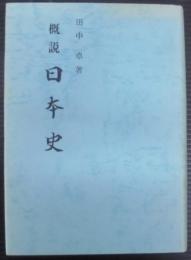 田中 卓 著
概説
日本史